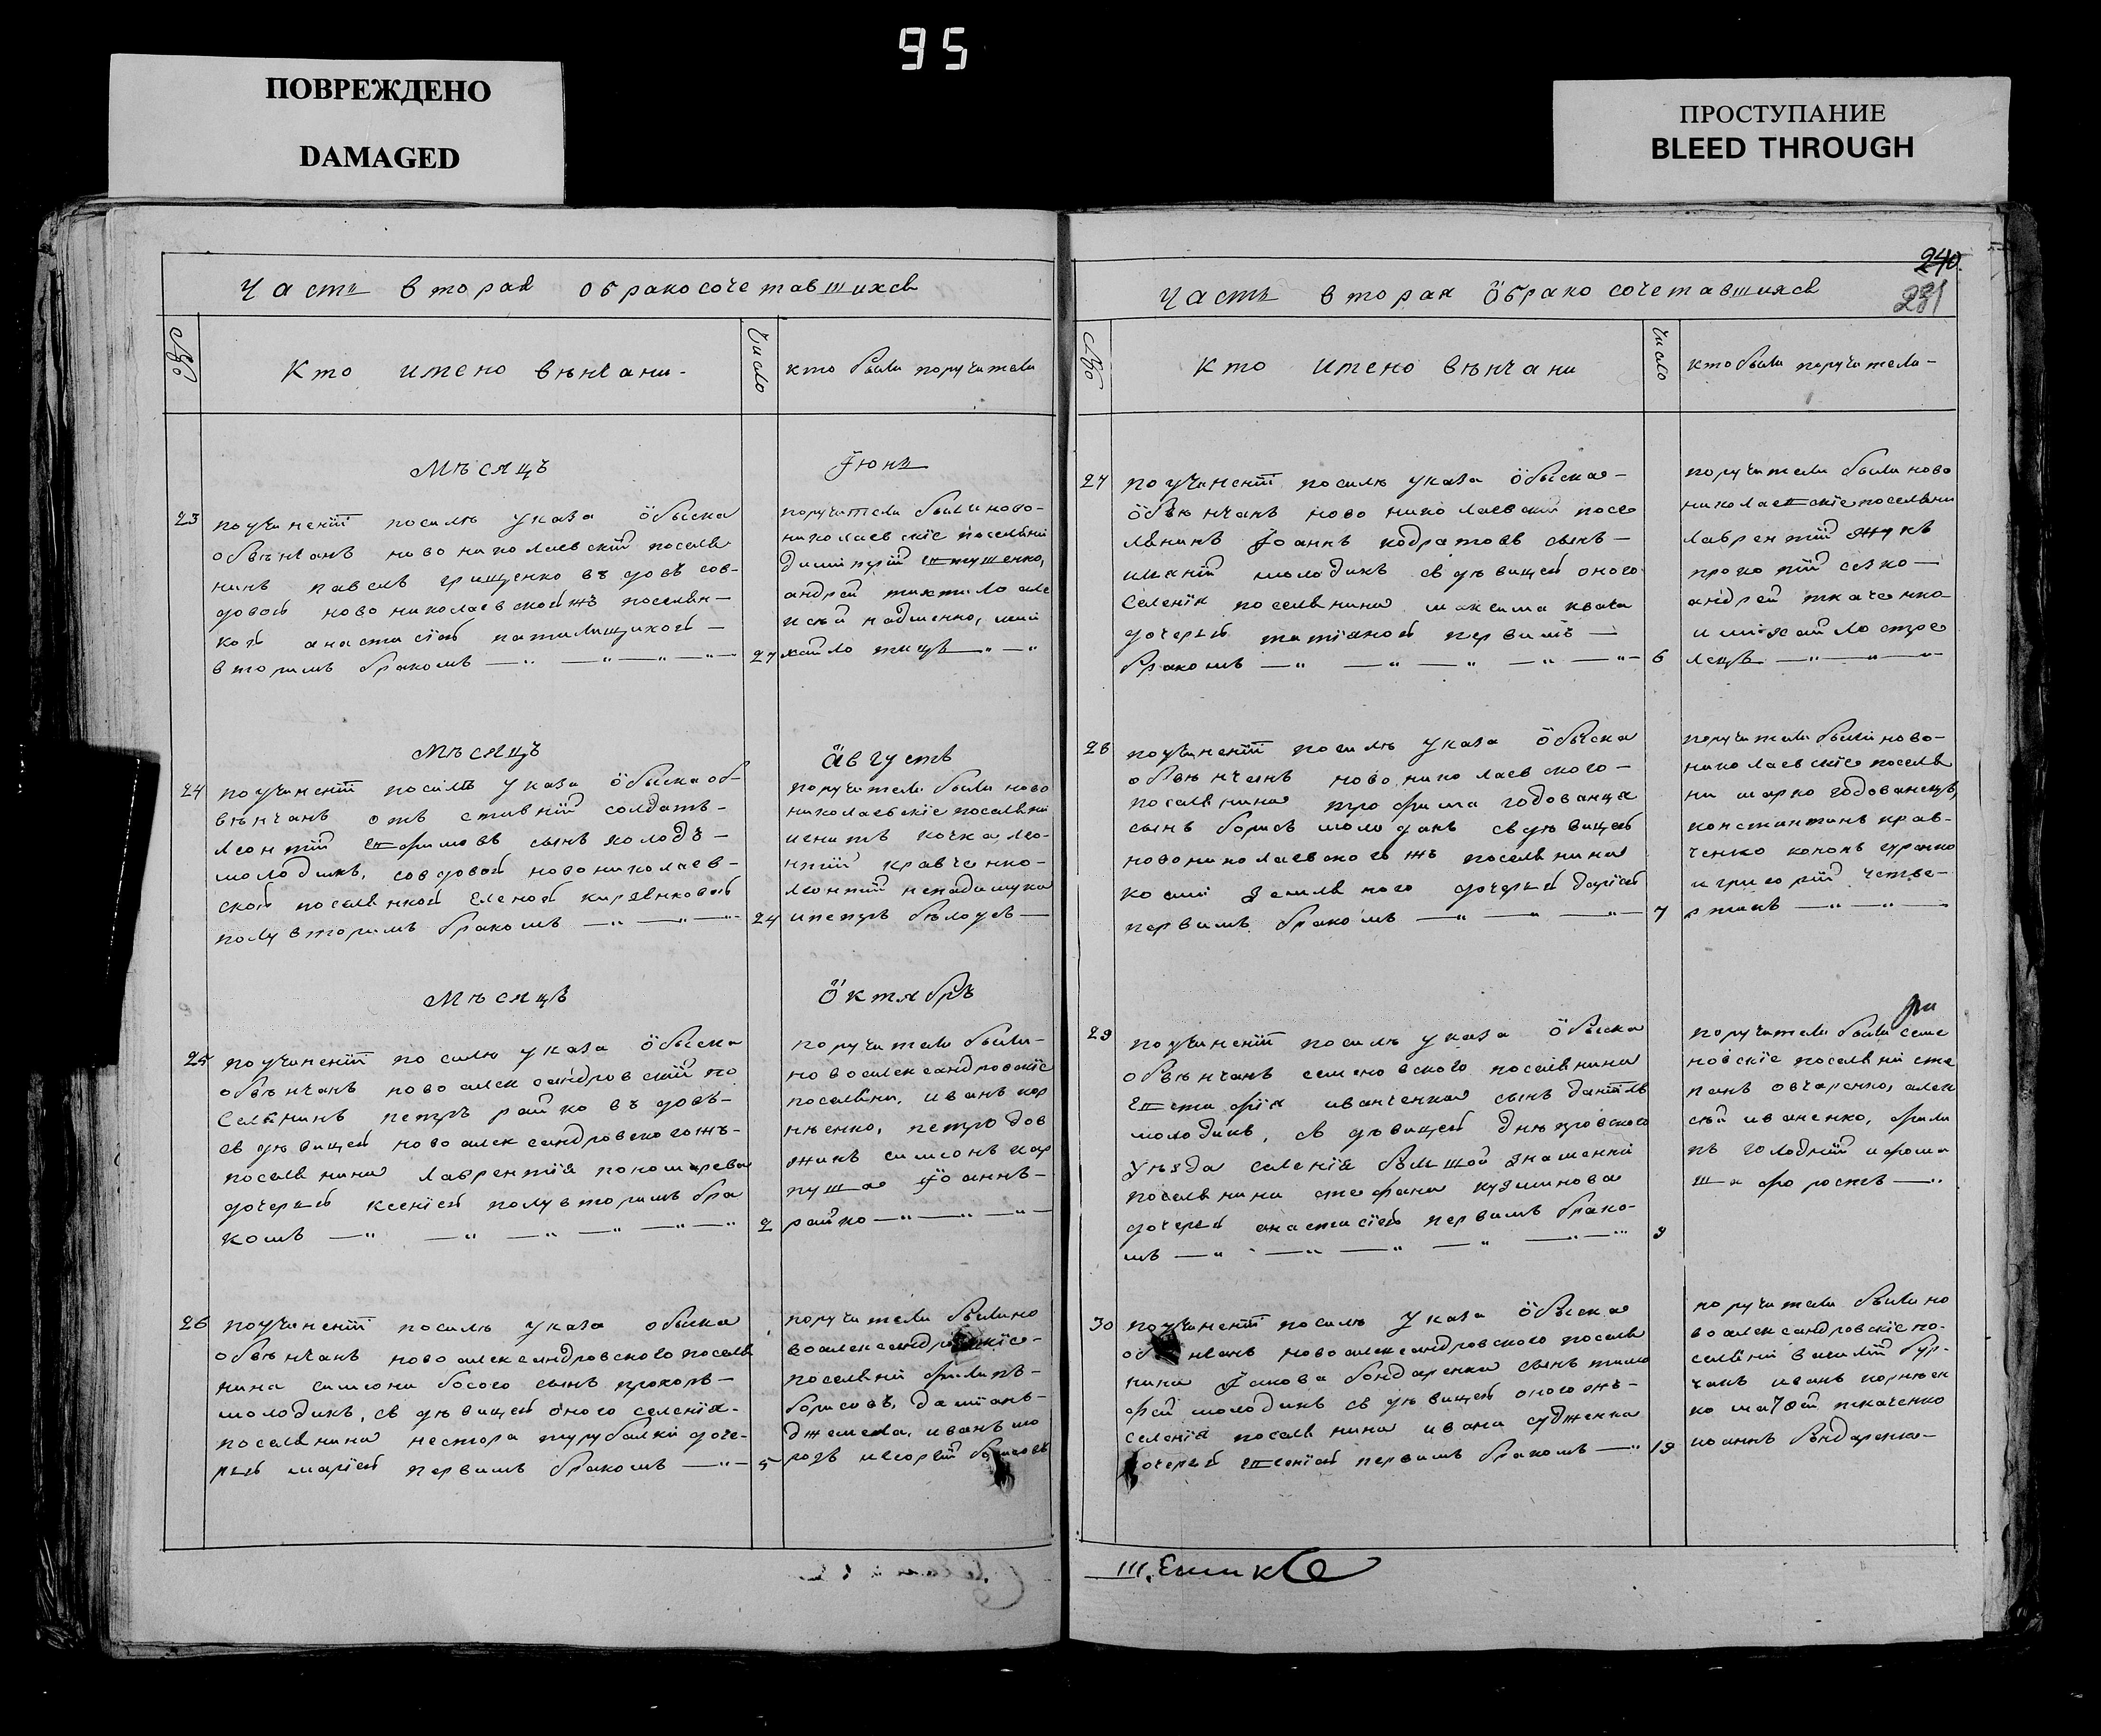 95
ПОВРЕЖДЕНО
DAMAGED
ПРОСТУПАНИЕ
BLEED THROUGH
Часть вторая обракосочетавшихся
№
кто имено вѣнчани
Число
кто были поручители
Мѣсяцъ
Іюнь
23
поучиненіи посилѣ указа обыска
обвѣнчанъ новониколаевскій поселя
нинъ павелъ грищенко въдовъ сов-
довой новониколаевскойжъ поселян-
кой анастасіей
вторимъ бракомъ
27
поручители были ново-
николаевскіе поселяни
димитрій евтушенко,
андрей але
ксѣй надменно, ми
хайло
Мѣсяцъ
Августъ
24
поучиненіи посилѣ указа обыска об-
вѣнчанъ отъ ставній солдатъ-
леонтій ефимовъ сынъ холодъ-
молодикъ, совдовой новониколаев-
ской поселянкой еленой
полувторимъ бракомъ
24
поручители были ново
николаевскіе поселяни
игнатъ кочка, лео-
нтій кравченко-
леонтій непадимука
ипетръ бѣлоусъ
Мѣсяцъ
Октябрь
25
поучиненіи посилѣ указа обыска
обвѣнчанъ новоалександровскій по
селянинъ петръ райко въдовъ-
съ дѣвицей новоалександровскогожъ-
поселянина лаврентія пономарева
дочерьй ксеніей полувторимъ бра
комъ
2
поручители были-
новоалександровскіе
поселяни, иванъ кор
нѣенко, петро дов
жикъ симеонъ кар
пуша іоаннъ-
райко
26
поучиненіи посилѣ указа обыска
обвѣнчанъ новоалександровского поселя
нина симеона босого сынъ прокопъ-
молодикъ, съ дѣвицей оного селенія-
поселянина нестора турубалки доче-
рьй маріей первимъ бракомъ
5
поручители были но
воалександровскіе-
поселяни филипъ-
борисовъ, даміянъ-
джемела, иванъ мо
розъ
Часть вторая Обракосочетавшихся
240
281
№
кто имено вѣнчани
Число
кто были поручители-
27
поучиненіи посилѣ указа обыска-
обвѣнчанъ новониколаевскій посе
лянинъ іоаннъ кодратовъ сынъ-
молодикъ съ дѣвицей оного
селенія поселянина максима квача
дочерьй татіяной первимъ
бракомъ
6
поручители были ново
николаевскіе поселяни
лаврентій жукъ
прокопій сезко
андрей ткаченко
имихайло стре
лецъ
28
поучиненіи посилѣ указа обыска
обвѣнчанъ новониколаевского-
поселянина трофима годованца
сынъ борисъ молодикъ съдѣвицей
новониколаевскогожъ поселянина
косми земляного дочерьй даріей
первимъ бракомъ
7
поручители были ново-
николаевскіе поселя
ни марко годованецъ,
константинъ крав-
ченко кононъ
игригорій четве-
ртикъ
29
поучиненіи посилѣ указа обыска
обвѣнчанъ семеновского поселянина
евстафія иванченка сынъ даніилъ
молодикъ, съ дѣвицей днѣпровского
уѣзда селенія большой знаменки
поселянина стефана кузминова
дочерей анастасіей первимъ брако-
мъ
9
поручители были семе
новскіе поселяни сте
панъ овчаренко, алек
сѣй иваненко, фили
пъ голодній ифома
шафоростъ
30
поучиненіи посилѣ указа обыска
обвѣнчанъ новоалександровского поселя
нина іакова бондаренка сынъ тимо
фей молодикъ съ дѣвицей оногожъ-
селенія поселянина ивана судженка
дочерьй евгеніей первимъ бракомъ
19
поручители были но
воалександровскіе по-
селяни василій бур-
чакъ иванъ корнѣен
ко матѳей ткаченко
иоаннъ бондаренко-